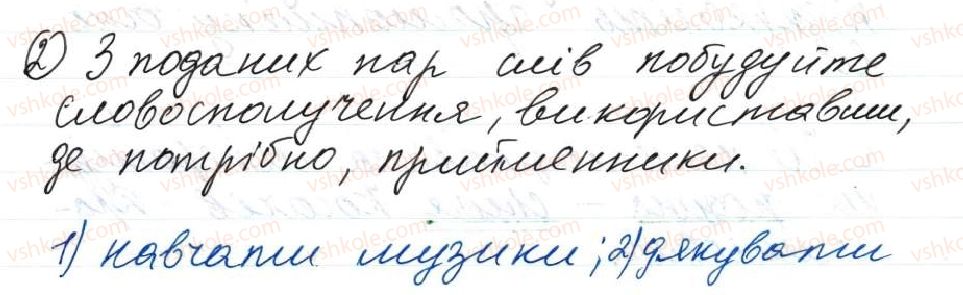 2) З поданих пар слів побудуйте
словосполучення, використавши,
де потрібно, прийменники.
1) навчати музики; 2) дякувати